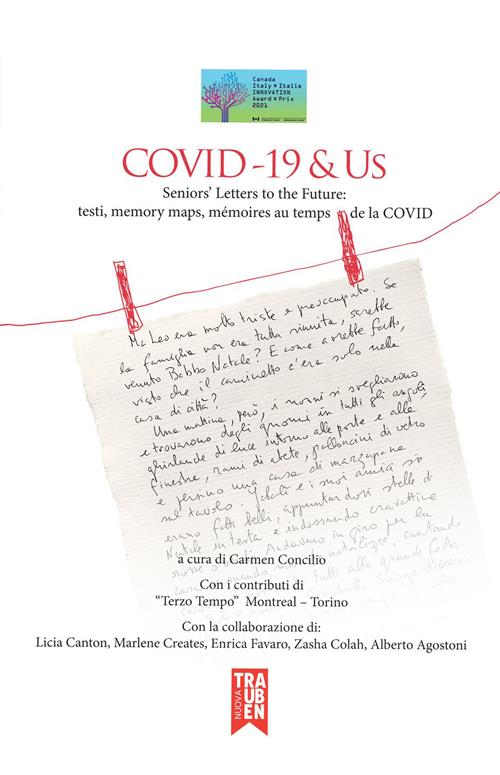 Canada
Italy • Italie
INNOVATION
Award • Prix
2021
COVID-19 & Us
Seniors' Letters to the Future:
testi, memory maps, mémoires au temps de la COVID
Ma Leo era molto triste e preoccupato. Se
la famiglia non era tutta riunita, sarebbe
venuto Babbo Natale? E come avrebbe fatto,
visto che il caminetto c'era solo nella
casa di città?
Una mattina, però, i nonni si svegliarono
e trovarono degli gnomi in tutti gli angoli,
ghirlande di luce intorno alle porte e alle
finestre, rami di abete, palloncini di vetro
e persino una casa di marzapane
sul tavolo. e i suoi amici si
erano fatti belli, appuntandosi stelle di
Natale in testa e indossando cravattine
rosse Andavano in giro per la
cantando
tutti alla grande festa
a cura di Carmen Concilio
Con i contributi di
"Terzo Tempo" Montreal – Torino
Con la collaborazione di:
Licia Canton, Marlene Creates, Enrica Favaro, Zasha Colah, Alberto Agostoni
NUOVA
TRA
UB
EN